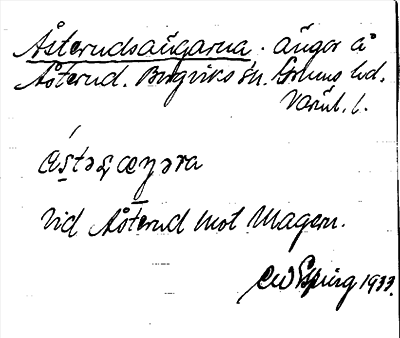 Åsterudsängarna. ängar å
Åsterud. Borgviks sn. Grums hd.
Värml. l.
åstəs æŋəra
Vid Åsterud mot Magern.
CW Espling 1933.